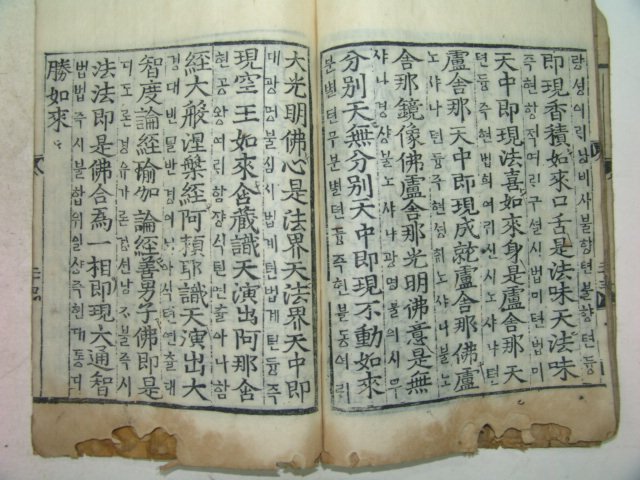 即現香積如來口舌是法味天法味
즉현향젹여ᄅᆡ구셜시법미텬법미
天中即現法喜如來身是盧舍那天
텬듕즉현법희여ᄅᆡ신시노샤나텬
盧舍那天中即現成就盧舍那佛盧
노샤나텬듕즉현셩노샤나불노
舍那鏡像佛盧舍那光明佛意是無
샤나경샹불노샤나광명불의시무
分別天無分別天中即現不動如來
분별텬무분별텬듕즉현불동여ᄅᆡ
大光明佛心是法界天法界天中即
대광명불심시법계텬법계텬듕즉
現空王如來含藏識天演出阿那含
현공왕여ᄅᆡ함쟝식텬연츌아나함
經大般涅槃經阿賴耶識天演出大
경대반경아식텬연츌대
智度論經瑜伽論經善男子佛即是
디도론경유가론경션남불즉시
法法即是佛合爲一相即現大通智
법법즉시불합위일샹즉현대통디
勝如來